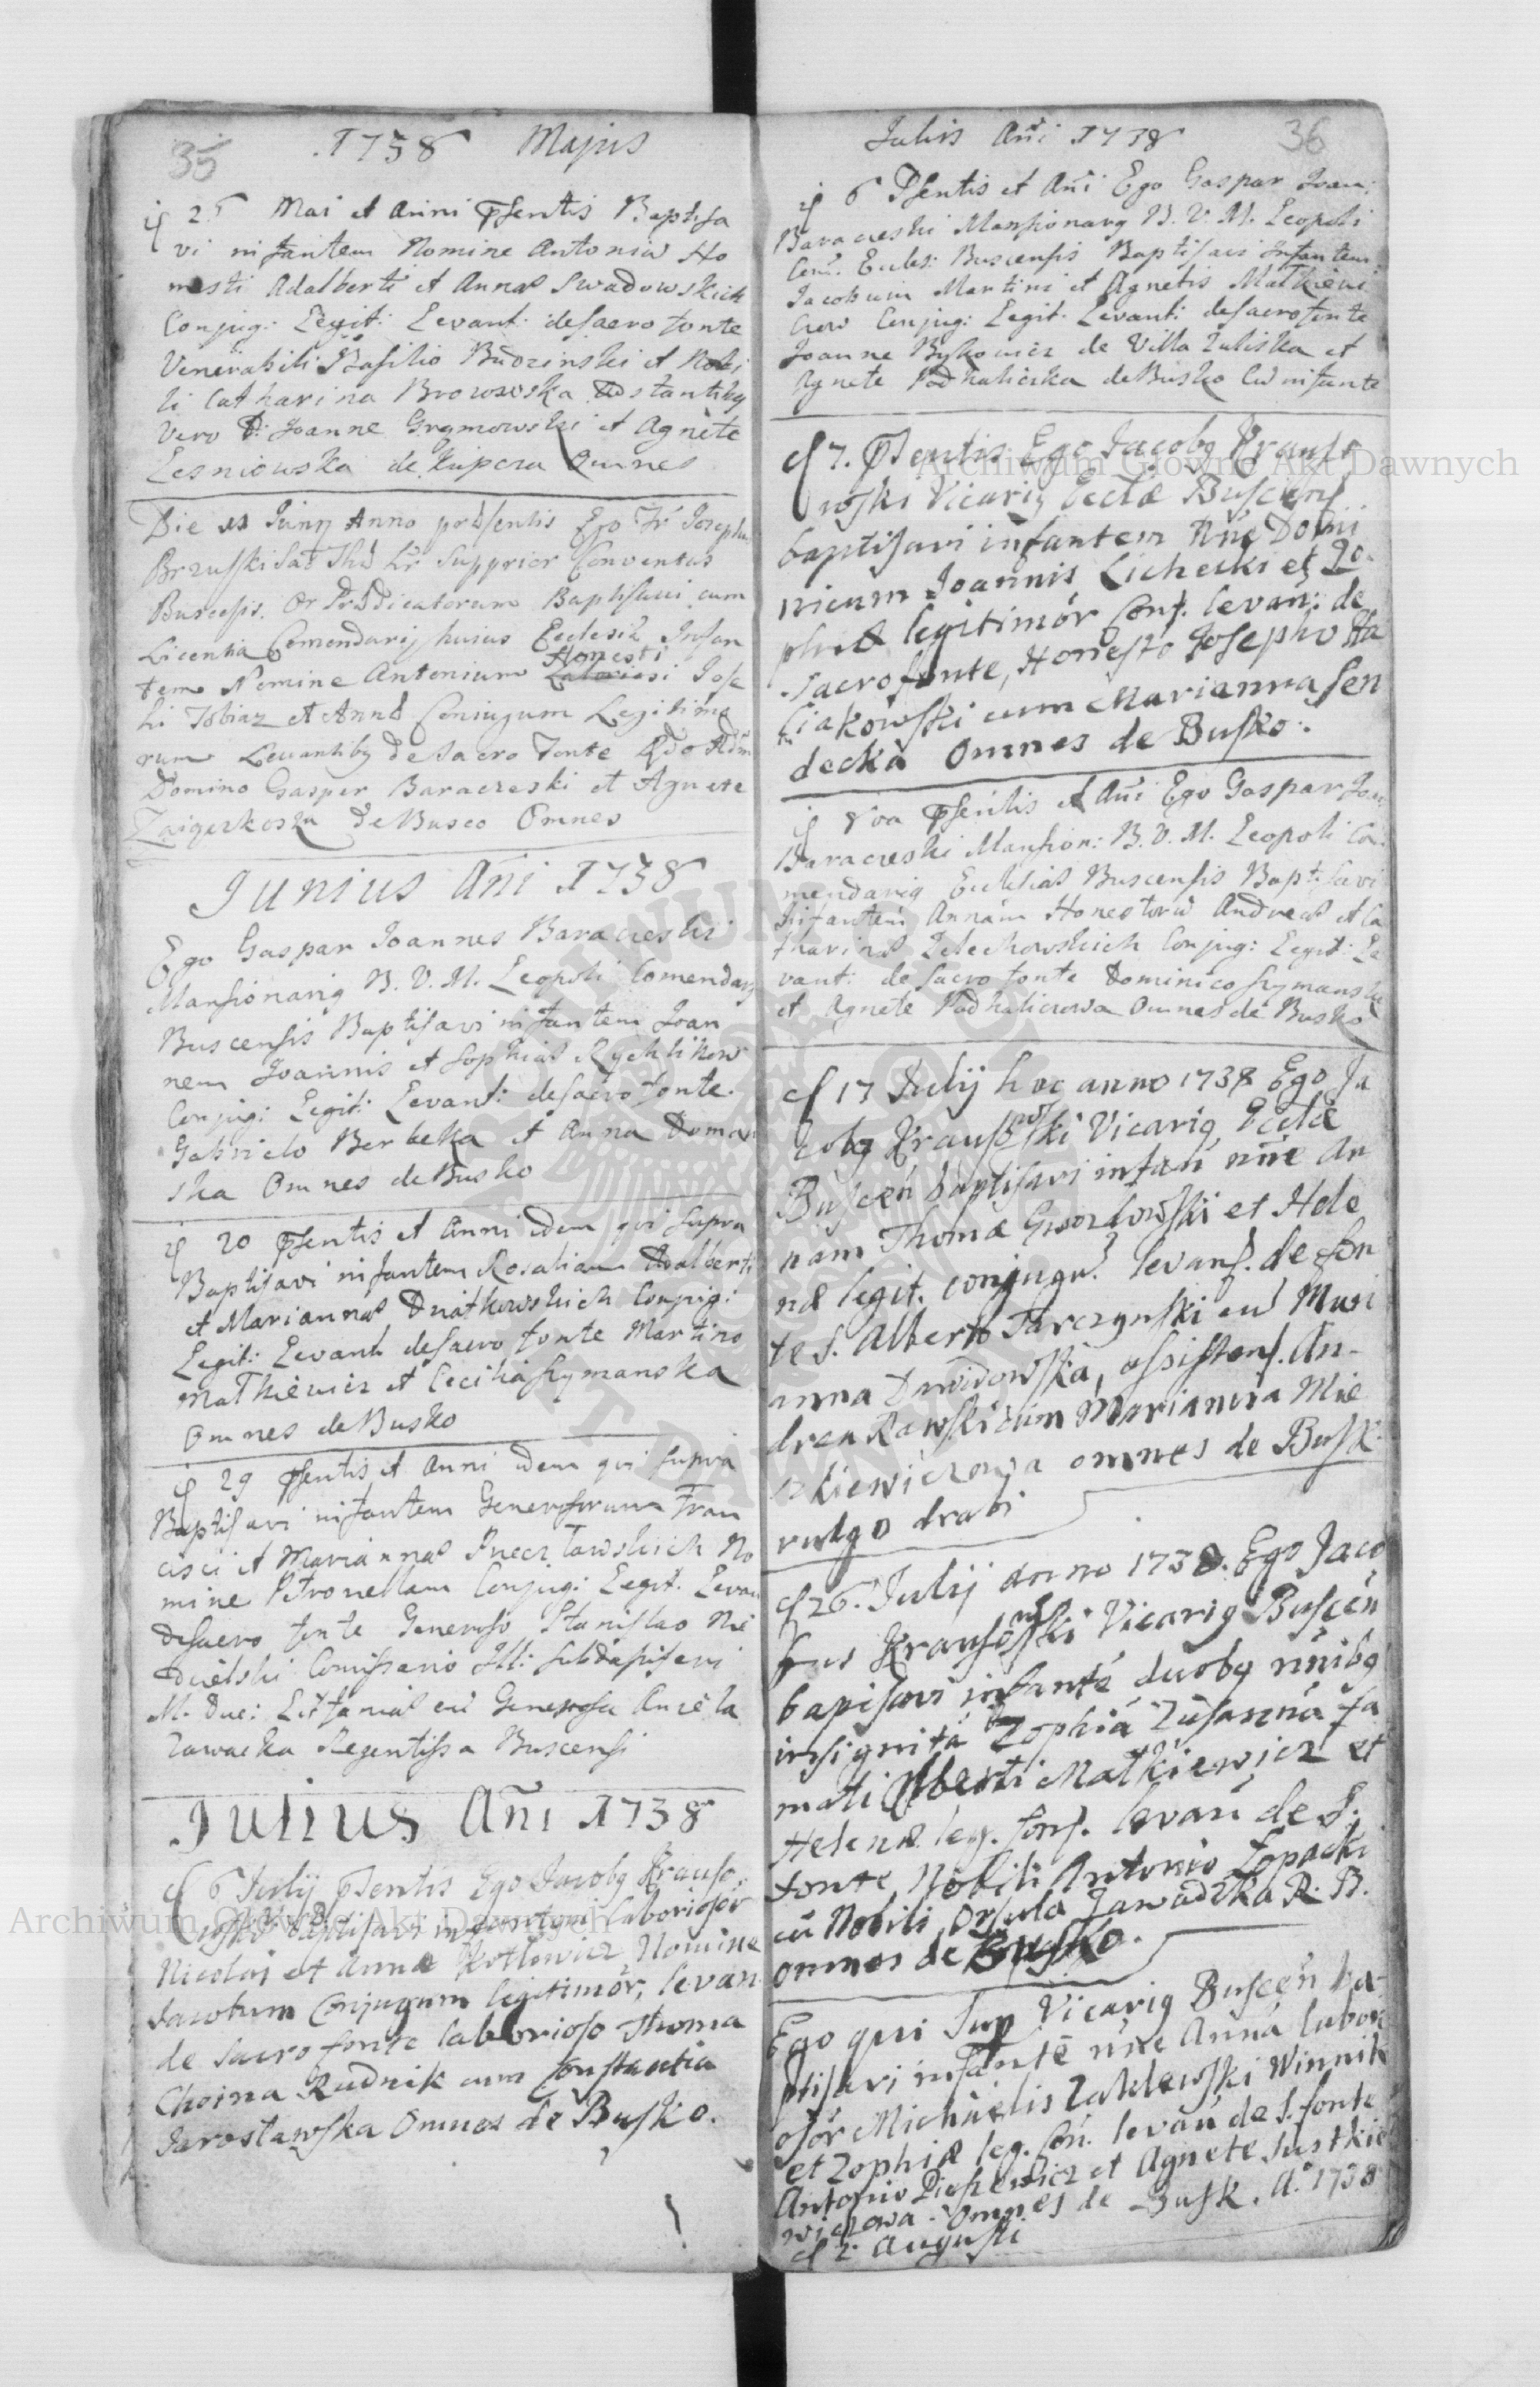 35
1738 Majus
Mai et Anni Psentis Baptisa
vi infantem Nomine Antoniu Ho
nesti Adalberti et Annæ Swadowskich
Conjug: Legit: Levant: de sacro fonte
Venerabili Basilio Budzinski et Nobi
li Catharina Browowska Adstantibq
vero D: Joanne Grymowski et Agnete
Lesniowska de Omnes
Die Junij Anno præsentis Ego Fr Joseph
Brzuski Supprior Conventus
Buscesis Or Prædicatorum Baptisavi cum
Licentia Comendarij huius Eclesiæ Infan
tem Nomine Antonium Honesti Jose
hi Tobiaz et Annæ Coniugum Legitimo
rum Levantibq de Sacro Fonte Rdo Adm
Domino Gasper Baraczeski et Agnete
de Busco Omnes
Junius Añi 1738
Ego Gaspar Joannes Baraczeski
Mansionariq B. V. M. Leopoli Comendariq
Buscensis Baptisavi infantem Joan
nem Joannis et Sophiæ Rychlikow
Conjug: Legit: Levant: de sacro fonte
Gabrielo Berbeka et Anna Doman
ska Omnes de Busko
20 Psentis et Anni idem qui supra
Baptisavi infantem Rosaliam Adalberti
et Mariannæ Dniatkowskich Conjug:
Legit: Levant de sacro fonte Martino
Mathiewicz et Cecilia Szymanska
Omnes de Busko
29 Psentis et Anni idem qui supra
Baptisavi infantem Generosorum Fran
cisci et Mariannæ No
mine Petronellam Conjug: Legit. Levan
de sacro fonte Generoso Stanislao Nie
dzielski Comissario Ill:
M. Duc: Littaniæ cu Generosa Aniela
Zawacka Regentissa Buscensi
Julius Añi 1738
6 Julij Psentis Ego Jacobq Krauso
wski baptisavi infantem laboriosor
Nicolai et Annæ Kotlowicz Nomine
Jacobum Conjugum legitimor, levan
de Sacro fonte laborioso Thoma
Choina Rudnik cum Constantia
Jarosławska Omnes de Busko.
36
Julis Añi 1738
6 Psentis et Añi Ego Gaspar Joan:
Baraczeski Mansionarq B. V. M. Leopoli
Com: Eccles: Buscensis Baptisavi Infantem
Jacobum Martini et Agnetis Mathiewi
czow Conjug: Legit: Levant: de sacro fonte
Joanne Bykowicz de Villa et
Agnete Podhaliczka de Busko Cu infante
7. Psentis Ego Jacobq Krauso
wski Vicariq Ecclæ Buscens
baptisavi infantem nñe Domi
nicum Joannis Lichecki et Zo
phiæ legitimor Conj. levan: de
sacro fonte, Honesto Josepho
cum Marianna Sen
decka Omnes de Busko.
8va Psentis et Añi Ego Gaspar Joan
Baraczeski Mansion: B. V. M. Leopoli Co
mendariq Ecclesiæ Buscensis Baptisavi
Infantem Annam Honestoru Andreæ et Ca
tharinæ Zelechowskich Conjug: Legit: Le
vant: de sacro fonte Dominico Szymanski
et Agnete Podhaliczowa Omnes de Busko
17 Julij hoc anno 1738 Ego Ja
cobq Krausowski Vicariq Ecclæ
Buscen baptisavi infan nñe An
nam Thomæ Gwozdowski et Hele
næ legit. conjugu levans. de fon
te S. Alberto Tarczynski cu Mari
anna Dawidowska, assistens. An-
drea Rawski cum Marianna Mie
szkiewiczowa omnes de Busk
vulgo drabi
26. Julij anno 1738. Ego Jaco
bus Krausowski Vicariq Buscen
bapisavi infante duobq nñibq
insignita Zophia Zusanna fa
mati Alberti Matkiewicz et
Helenæ leg. conj. levan de S.
fonte Nobili Antonio Łopacki
cu Nobili Orsula Zawadzka R. B.
omnes de Busko.
Ego qui sup Vicariq Buscen ba-
ptisavi infante nñe Anna labori
osor Michaelis Zaklewski Winnik
et Zophiæ leg. con. levan de S. fonte
Antonio et Agnete Justkie
wiczowa. Omnes de Busk. A. 1738
2 Augusti
Archiwum Główne Akt Dawnych
Archiwum Główne Akt Dawnych